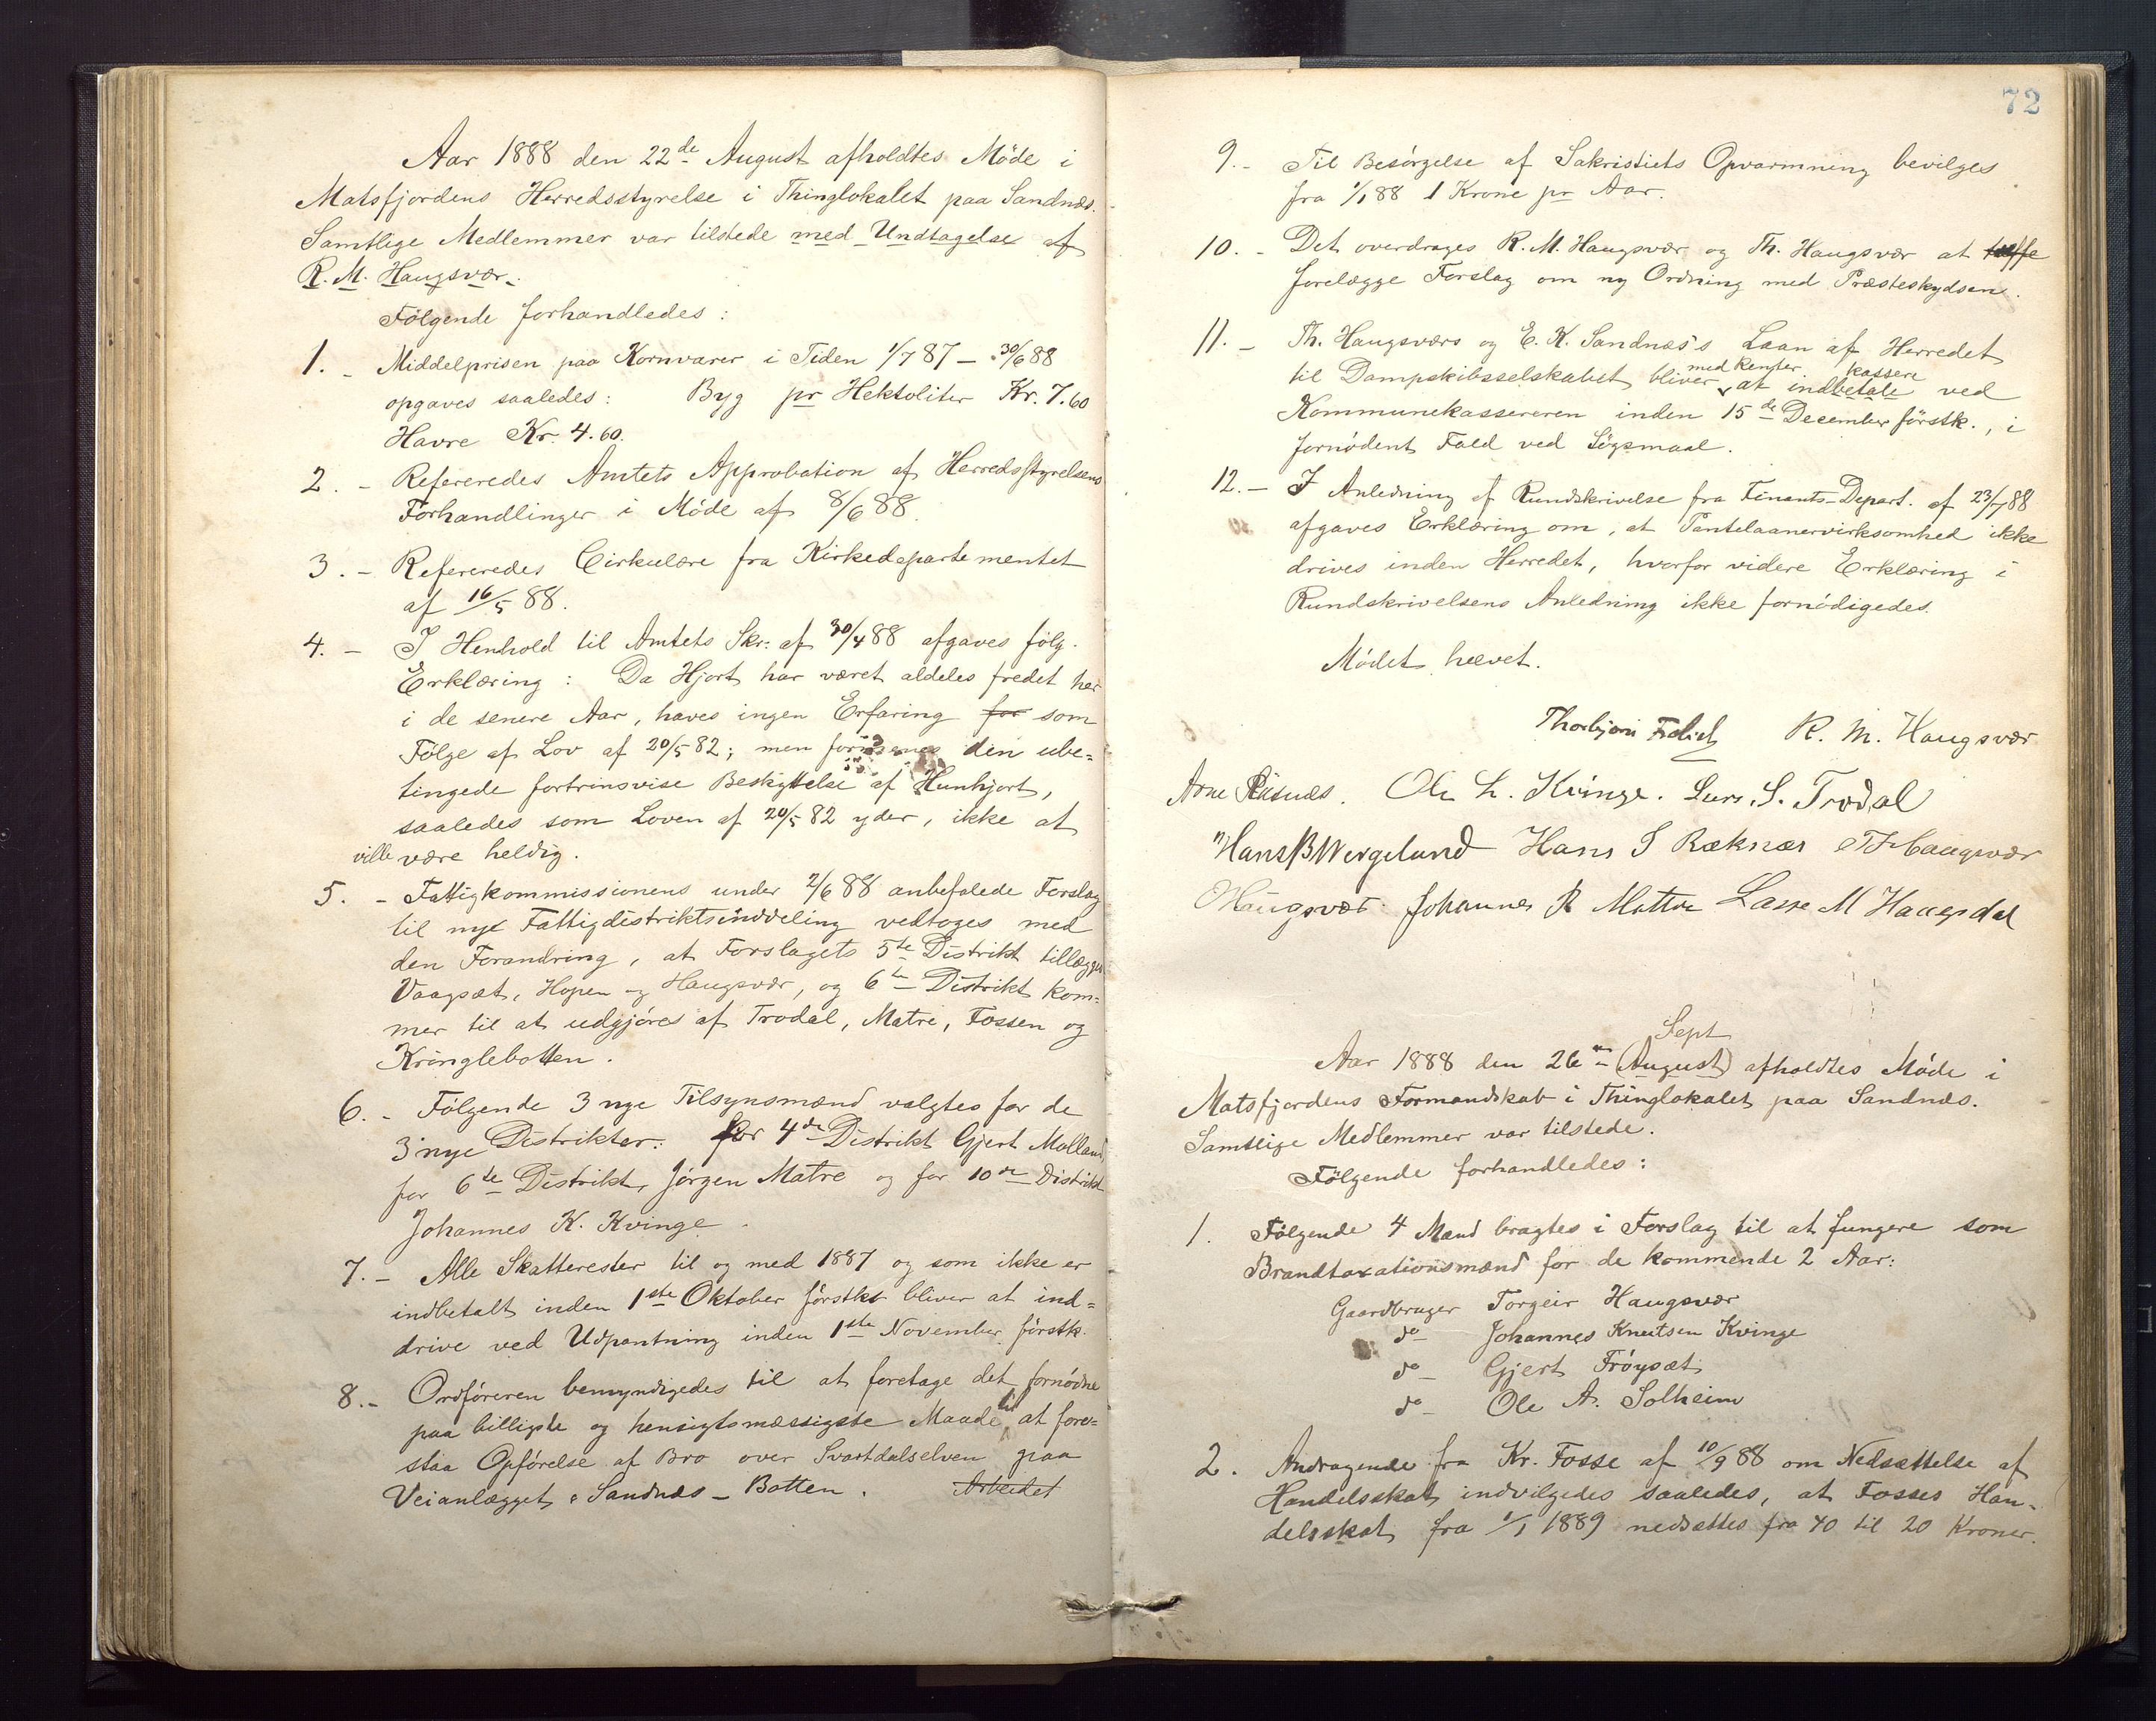 Aar 1888 den 22de August afholdtes Møde i
Matsfjordens Herredsstyrelse i Thinglokalet paa Sandnæs.
Samtlige Medlemmer var tilstede med Undtagelse af
R. M. Haugsvær.
Følgende forhandledes:
1. - Middelprisen paa Kornvarer i Tiden 1/7 87 - 30/6 88
opgaves saaledes: Byg pr Hektoliter Kr. 7.60
Havre Kr. 4.60.
2. - Refereredes Amtets Approbation af Herredsstyrelsens
Forhandlinger i Møde af 8/6 88.
3. - Refereredes Cirkulære fra Kirkedepartementet
af 16/5 88.
4. - I Henhold til Amtets Skr: af 30/4 88 afgaves følg.
Erklæring: Da Hjort har været aldeles fredet her
i de senere Aar, haves ingen Erfaring for som
Følge af Lov af 20/5 82; men formenes den ube=
tingede fortrinsvise Beskyttelse af Hunhjort,
saaledes som Loven af 20/5 82 yder, ikke at
ville være heldig.
5. - Fattigkommissionens under 2/6 88 anbefalede Forslag
til nye Fattigdistriktsinddeling vedtoges med
den Forandring, at Forslagets 5te Distrikt tillægges
Vaagsæt, Hopen og Haugsvær, og 6te Distrikt kom=
mer til at udgjøres af Trodal, Matre, Fossen og
Kringlebotten.
6. - Følgende 3 nye Tilsynsmænd valgtes for de
3 nye Distrikter: for 4de Distrikt Gjert Molland,
for 6te Distrikt, Jørgen Matre og for 10de Distrikt
Johannes K. Kvinge.
7. - Alle Skatterester til og med 1887 og som ikke er
indbetalt inden 1ste Oktober førstk. bliver at ind=
drive ved Udpantning inden 1ste November førstk.
8. - Ordføreren bemyndigedes til at foretage det fornødne
paa billigste og hensigtsmæssigste Maade til at fore=
staa Opførelse af Bro over Svartdalselven paa
Veianlægget Sandnæs - Botten. Arbeidet
72
9. - Til Besørgelse af Sakristiets Opvarmning bevilges
fra 1/1 88 1 Krone pr Aar.
10. - Det overdrages R. M. Haugsvær og Th. Haugsvær at
forelægge Forslag om ny Ordning med Præsteskydsen.
11. - Th. Haugsværs og E. K. Sandnæs's Laan af Herredet
med Renter kassere
til Dampskibsselskabet bliver at indbetale ved
Kommunekassereren inden 15de December førstk., i
fornødent Fald ved Søgsmaal.
12. - I Anledning af Rundskrivelse fra Finants-Depart. af 23/7 88
afgaves Erklæring om, at Pantelaanervirksomhed ikke
drives inden Herredet, hvorfor videre Erklæring i
Rundskrivelsens Anledning ikke fornødigedes.
Mødet hævet.
Thorbjørn R. M. Haugsvær
Arne Ole L. Kvinge. Lars. S. Trodal
Hans B Wergeland Hans S Ræknæs T Haugsvær
Haugsvær Johannes R Matre Lasse M Haugsdal
Sept
Aar 1888 den 26de (August) afholdtes Møde i
Matsfjordens Formandskab i Thinglokalet paa Sandnæs.
Samtlige Medlemmer var tilstede.
Følgende forhandledes:
1. Følgende 4 Mænd bragtes i Forslag til at fungere som
Brandtaxationsmænd for de kommende 2 Aar:
Gaardbruger Torgeir Haugsvær
do - Johannes Knutsen Kvinge
do - Gjert Frøysæt
do - Ole A. Solheim
2. Andragende fra Kr. Fosse af 10/9 88 om Nedsættelse af
Handelsskat indvilgedes saaledes, at Fosses Han-
delsskat fra 1/1 1889 nedsættes fra 40 til 20 Kroner.